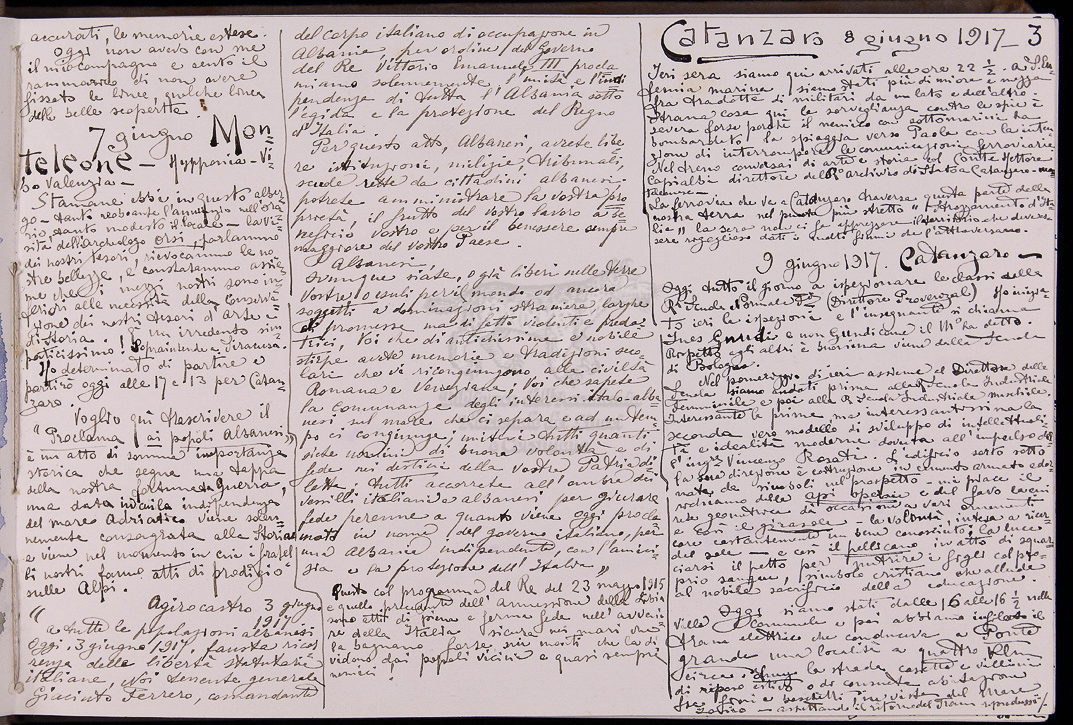 accurati, le memorie estese.
Oggi non avevo con me
il mio compagno e sento il
rammarico di non avere
fissato le linee, qualche linea
delle belle scoperte.
7 giugno Mon=
teleone — Hypponia - Vi=
bo Valenzia —
Stamane ebbi in questo alber=
go - tanto reboante l'annunzio nell'ora=
rio, tanto modesto il locale - la vi=
sita dell'archeologo Orsi, parlammo
dei nostri tesori, rievocammo le no=
stre bellezze, e constatammo assie=
me che i mezzi nostri sono in=
feriori alle necessità della Conserva=
zione dei nostri tesori d'arte e
di storia. È un irredento sim=
paticissimo! Sopraintende a Siracusa.
Ho determinato di partire e
partirò oggi alle 17 e 13 per Catan=
zaro.
Voglio qui trascrivere il
"Proclama ai popoli Albanesi"
è un atto di somma importanza
storica che segna una tappa
della nostra fortunata guerra,
una data in cui la indipendenza
del mare Adriatico viene solen=
nemente consagrata alla storia
e viene nel momento in cui i fratel=
li nostri fanno atti di prodigio
sulle Alpi.
Agirocastro 3 giugno
1917
"a tutte le popolazioni albanesi
Oggi, 3 giugno 1917, fausta ricor
renza delle libertà statutarie
italiane, Noi tenente generale
Giacinto Ferrero, comandante
del corpo italiano di occupazione in
Albania, per ordine del Governo
del Re Vittorio Emanuele III, procla
miamo solennemente l'unità e l'indi
pendenza di tutta l'Albania sotto
l'egida e la protezione del Regno
d'Italia.
Per questo atto, Albanesi, avrete libe=
re istituzioni, milizie, tribunali,
scuole rette da cittadini albanesi,
potrete amministrare la vostra pro
prietà il frutto del vostro lavoro a be
neficio vostro e per il benessere sempre
maggiore del vostro Paese.
Albanesi,
Dunque siate, o già liberi nelle terre
vostre o esuli per il mondo od ancora
soggetti a dominazioni straniere larghe
di promesse ma di fatti violenti e preda=
trici, Voi che di antichissima e nobile
stirpe avete memorie e tradizioni seco=
lari che vi ricongiungono alla civiltà
Romana e Veneziana; Voi che sapete
la comunanza degli interessi Italo-alba=
nesi sul mare che ci separa e ad un tem=
po ci congiunge, unitevi tutti quanti
siete uomini di buona volontà e di
fede nei destini della vostra Patria di
letta tutti accorrete all'ombra dei
vessilli italiani e albanesi per giurare
fede perenne a quanto viene oggi procla
mato in nome del governo italiano, per
una Albania indipendente, con l'amici=
zia e la protezione dell'Italia"
Questo col programma del Re del 23 maggio 1915
e quello precedente dell'Annessione della Libia
sono atti di piena e ferma fede nell'avveni
re della Italia sicura nei mari che
la bagnano forse sui monti che la di
vidono dai popoli vicini e quasi sempre
nemici!
Catanzaro 8 giugno 1917 — 3
Ieri sera siamo qui arrivati alle ore 22 ½. A S. Eu
femia marina siamo stati più di un'ora e mezza
fra tradotte di militari da un lato e dell'altro
strana cosa qui la sorveglianza contro le spie è
severa forse perché il nemico con sottomarini ha
bombardato la spiaggia verso Paola con la inten
zione di interrompere le comunicazioni ferroviarie.
Nel treno conversai di arte e storia col Conte Hettore
Capialbi direttore del R. archivio di Stato a Catanzaro.
La ferrovia che va a Catanzaro traversa questa parte della
nostra terra nel punto più stretto "strozzamento d'Ita=
lia" la sera non ci fa apprezzare il territorio che
9 giugno 1917. Catanzaro —
Oggi tutto il giorno a ispezionare le classi della
R. Scuola Normale (Direttore Provenzale) Ho inizia=
to ieri la ispezione e l'insegnante si chiama
Ines e non Giundi come il M.o ha detto.
Rispetto agli altri è buonima viene dalla Scuola
di Bologna.
Nel pomeriggio di ieri assieme al Direttore della
Scuola siamo andati prima alla Scuola Industriale
femminile e poi alla R. Scuola Industriale maschile.
Interessante la prima, ma interessantissima la
seconda vero modello di sviluppo di intellettuali=
tà e idealità moderne dovuta all'impulso del
l'ing.e Vincenzo Rosati. L'edificio sorto sotto
la sua direzione è costruzione in cemento armato e ador
nata da simboli nel prospetto - mi piace il
richiamo delle api operaie e del favo la cui
rete geometrica dà occasione a vari ornamenti
e così il girasole - la volontà intesa a ricer
care costantemente un bene conosciuto la luce
del sole — e così il pellicano in atto di squar
ciarsi il petto per nutrire i figli col pro=
prio sangue, simbolo cristiano che allude
al nobile sacrificio della educazione.
Oggi siamo stati dalle 16 alle 16 ½ nella
villa Comunale e poi abbiamo inforcato il
tram elettrico che conduceva a Ponte
grande una località a quattro Klm
circa: lungo la strada casette e villini
di riposo estivo o di consueta abitazione
fra fiori e boschetti in vista del mare
Ionio — aspettando il ritorno del Tram